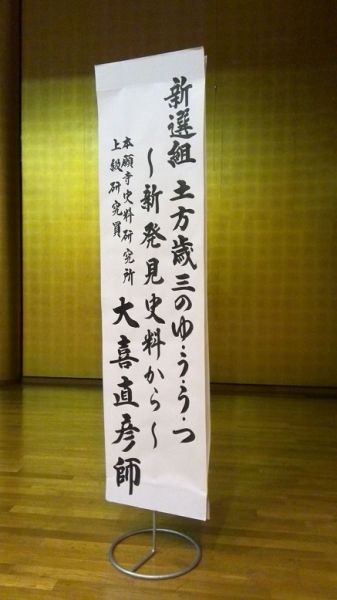 新選組 土方歳三のゆ・う・う・つ
～新発見史料から～
本願寺史料研究所
上級研究員
大喜直彦師